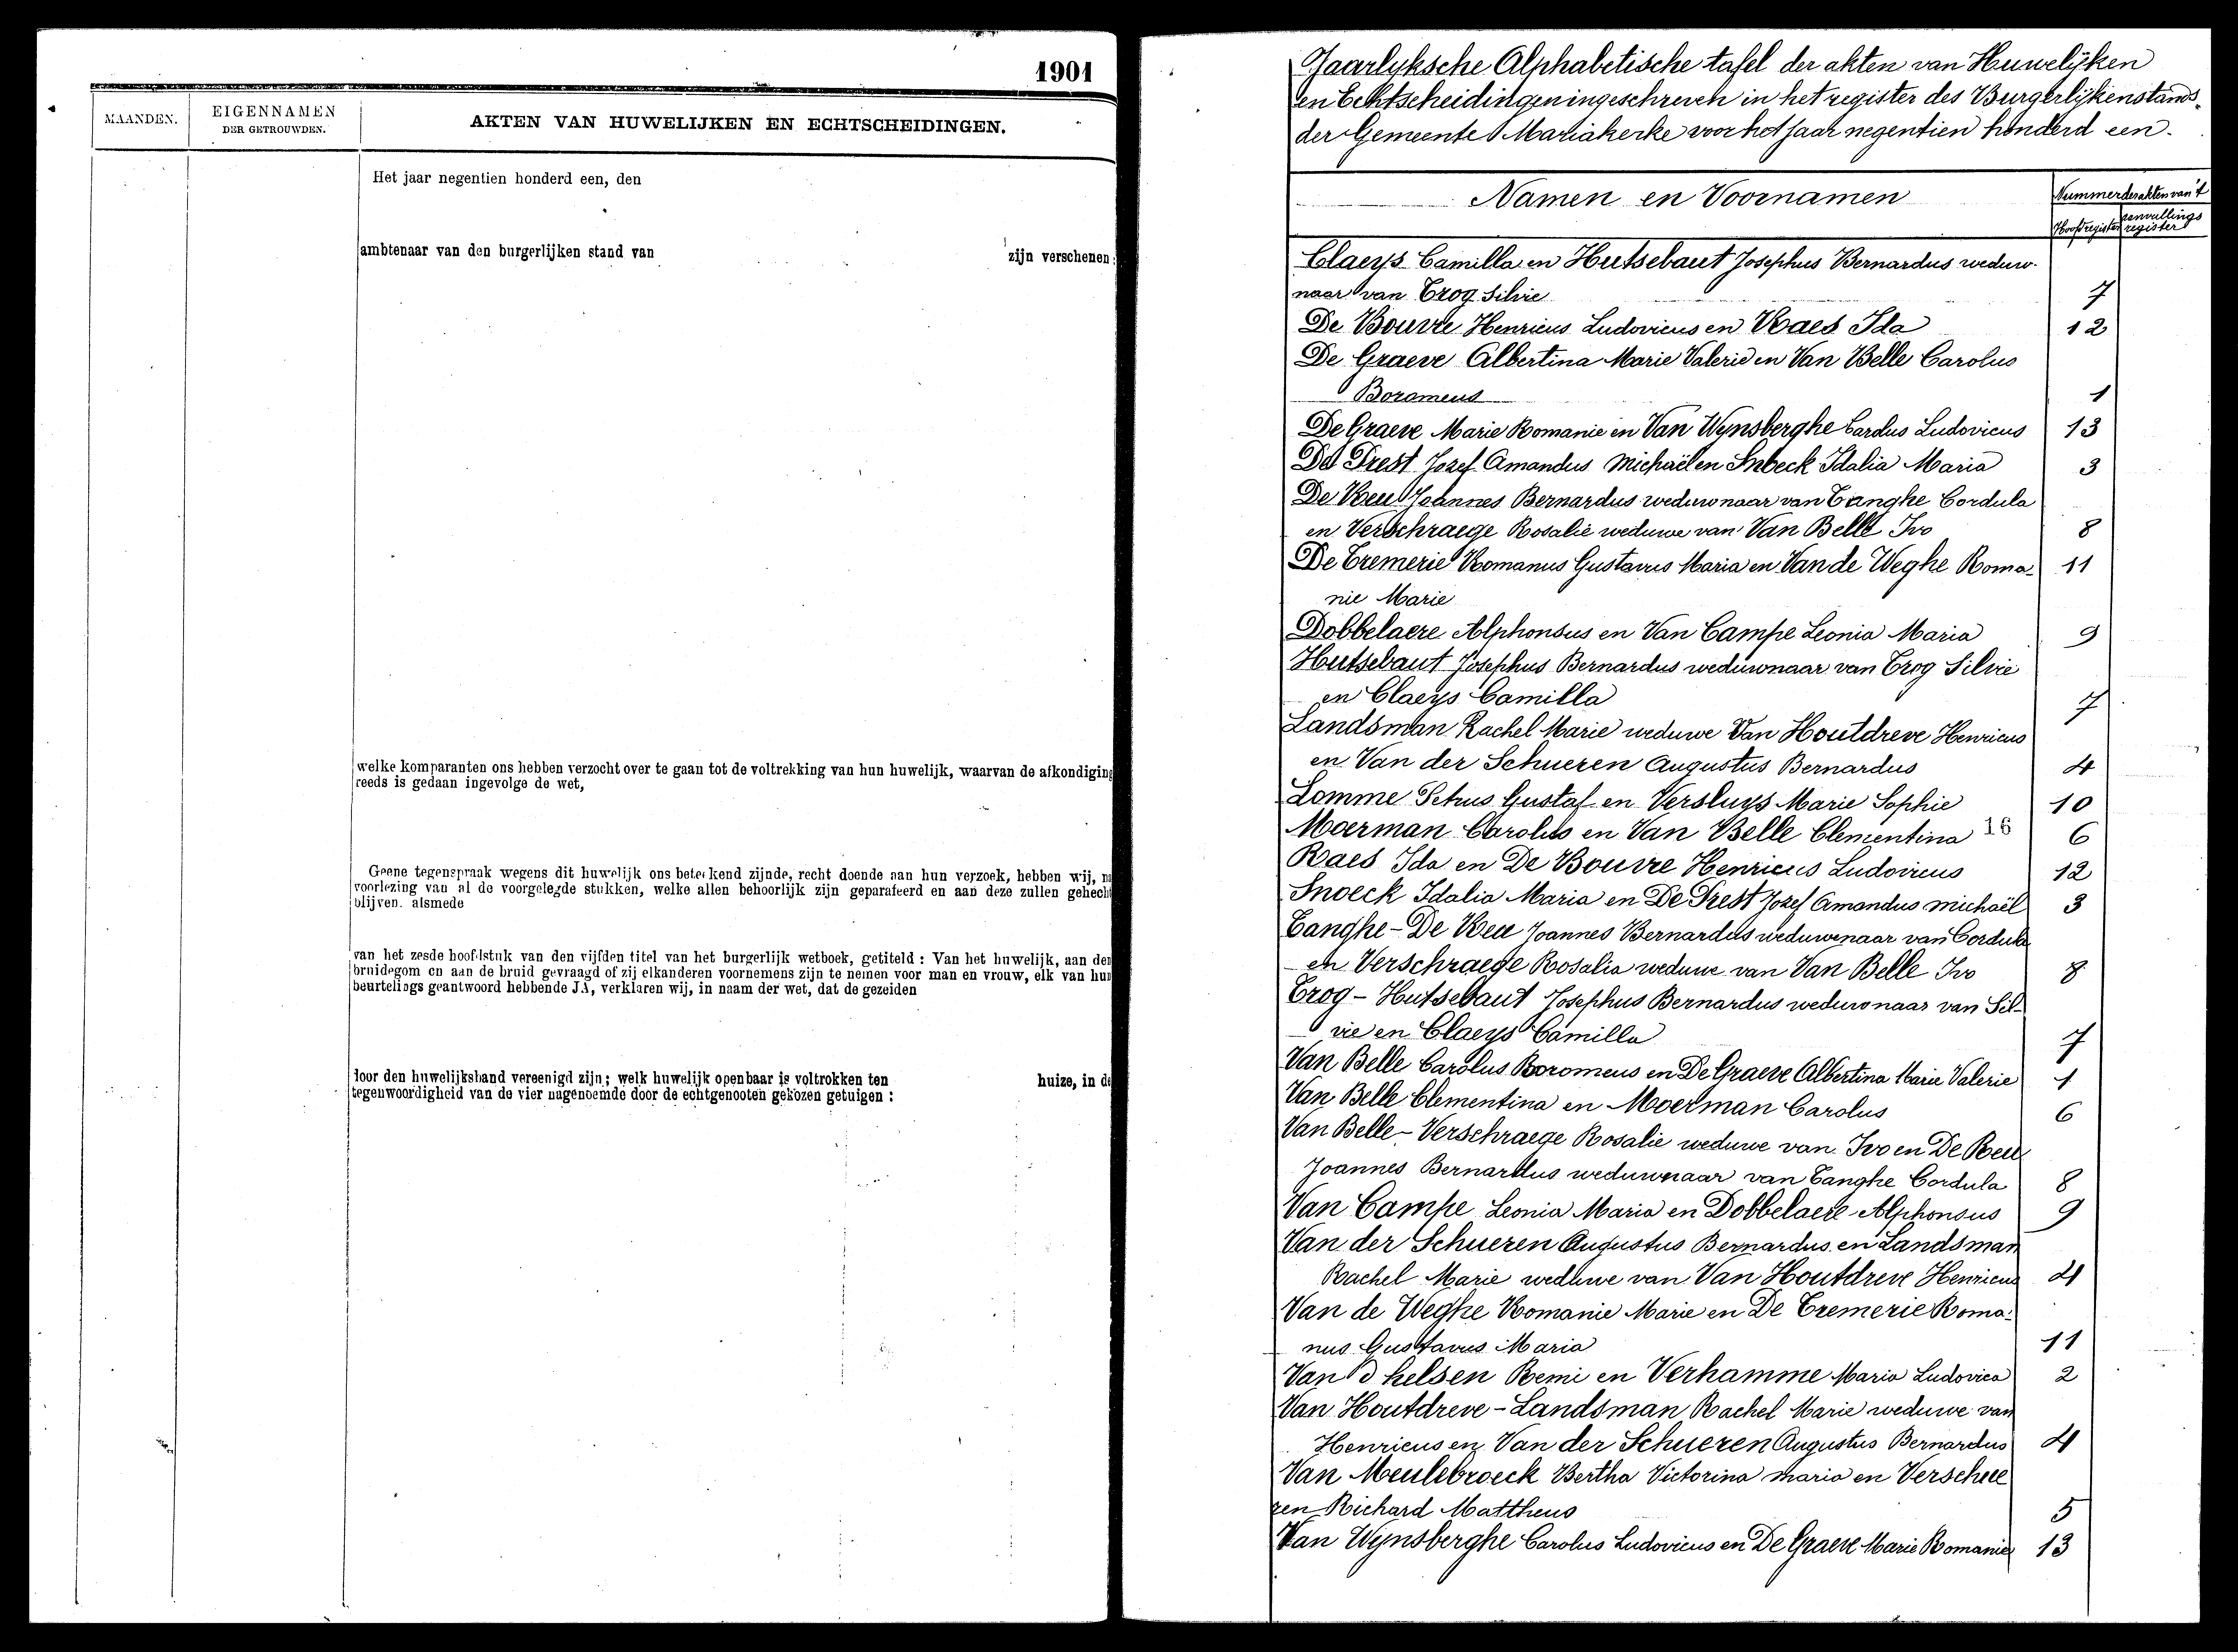 1901
MAANDEN.
EIGENNAMEN
DER GETROUWDEN.
AKTEN VAN HUWELIJKEN EN ECHTSCHEIDINGEN.
Het jaar negentien honderd een, den
ambtenaar van den burgerlijken stand van zijn verschenen:
welke komparanten ons hebben verzocht over te gaan tot de voltrekking van hun huwelijk, waarvan de afkondiging
reeds is gedaan ingevolge de wet,
Geene tegenspraak wegens dit huwelijk ons beteekend zijnde, recht doende aan hun verzoek, hebben wij, na
voorlezing van al de voorgelegde stukken, welke allen behoorlijk zijn geparafeerd en aan deze zullen gehecht
blijven. alsmede
van het zesde hoofdstuk van den vijfden titel van het burgerlijk wetboek, getiteld : Van het huwelijk, aan den
bruidegom en aan de bruid gevraagd of zij elkanderen voornemens zijn te nemen voor man en vrouw, elk van hun
beurtelings geantwoord hebbende JA, verklaren wij, in naam der wet, dat de gezeiden
door den huwelijksband vereenigd zijn; welk huwelijk openbaar is voltrokken ten huize, in de
tegenwoordigheid van de vier nagenoemde door de echtgenooten gekozen getuigen :
Jaarlyksche Alphabetische tafel der akten van Huwelijken
en Echtscheidingen ingeschreven in het register des Burgerlijkenstands
der Gemeente Mariakerke voor het jaar negentien honderd een.
Namen en Voornamen
Nummer der akten van 't
Hoofdregister aanvullings register
Claeys Camilla en Hutsebaut Josephus Bernardus weduw-
naar van Trog Silvie 7
De Bouvre Henricus Ludovicus en Raes Ida 12
De Graeve Albertina Marie Valerie en Van Belle Carolus
Boromeus 1
De Graeve Marie Romanie en Van Wynsberghe Carolus Ludovicus 13
De Prest Jozef Amandus Michaël en Snoeck Idalia Maria 3
De Reu Joannes Bernardus weduwnaar van Tanghe Cordula
en Verschraege Rosalie weduwe van Van Belle Ivo 8
De Tremerie Romanus Gustavus Maria en Van de Weghe Roma- 11
nie Marie
Dobbelaere Alphonsus en Van Campe Leonia Maria 9
Hutsebaut Josephus Bernardus weduwnaar van Trog Silvie
en Claeys Camilla 7
Landsman Rachel Marie weduwe Van Houtdreve Henricus
en Van der Schueren Augustus Bernardus 4
Lomme Petrus Gustaf en Versluys Marie Sophie 10
Moerman Carolus en Van Belle Clementina 16 6
Raes Ida en De Bouvre Henricus Ludovicus 12
Snoeck Idalia Maria en De Prest Jozef Amandus Michaël 3
Tanghe - De Reu Joannes Bernardus weduwenaar van Cordula
en Verschraege Rosalia weduwe van Van Belle Ivo 8
Trog - Hutsebaut Josephus Bernardus weduwnaar van Sil-
vie en Claeys Camilla 7
Van Belle Carolus Boromeus en De Graeve Albertina Marie Valerie 1
Van Belle Clementina en Moerman Carolus 6
Van Belle - Verschraege Rosalie weduwe van Ivo en De Reu
Joannes Bernardus weduwnaar van Tanghe Cordula 8
Van Campe Leonia Maria en Dobbelaere Alphonsus 9
Van der Schueren Augustus Bernardus en Landsman
Rachel Marie weduwe van Van Houtdreve Henricus 4
Van de Weghe Romanie Marie en De Tremerie Roma-
nus Gustavus Maria 11
Van d'helsen Remi en Verhamme Maria Ludovica 2
Van Houtdreve - Landsman Rachel Marie weduwe van
Henricus en Van der Schueren Augustus Bernardus 4
Van Meulebroeck Bertha Victorina Maria en Verschue
ren Richard Mattheus 5
Van Wynsberghe Carolus Ludovicus en De Graeve Marie Romanie 13